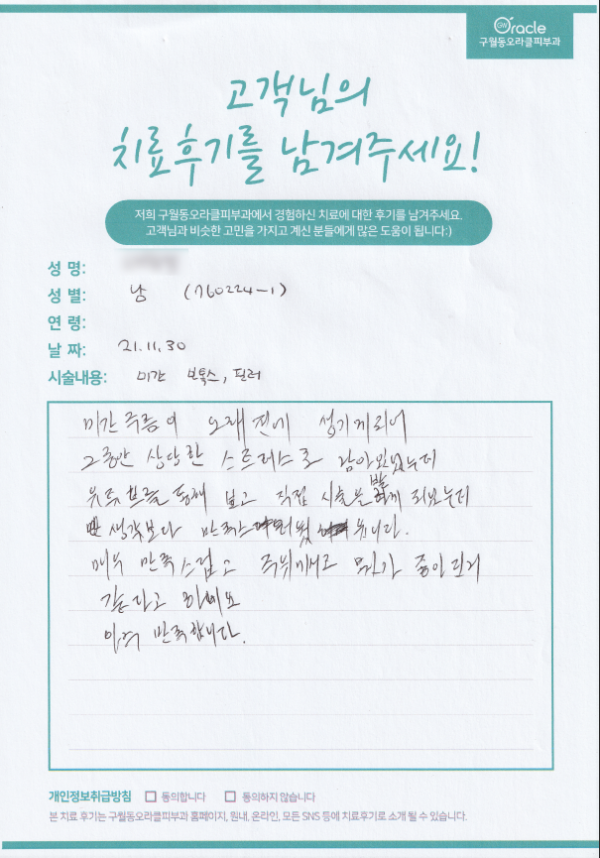 GW Oracle
구월동오라클피부과
고객님의
치료후기를 남겨주세요!
저희 구월동오라클피부과에서 경험하신 치료에 대한 후기를 남겨주세요.
고객님과 비슷한 고민을 가지고 계신 분들에게 많은 도움이 됩니다:)
성 명:
성 별: 남 (760224-1)
연 령:
날 짜: 21.11.30
시술내용: 미간 보톡스, 필러
미간 주름이 오래 전에 생기게되어
그동안 상당한 스트레스로 남아있었는데
유튜브를 통해 보고 직접 시술을 받게 되었는데
생각보다
매우 만족스럽고 주위에서도 뭐가 좋아진거
같다고 하네요
아주 만족합니다.
개인정보취급방침 동의합니다 동의하지 않습니다
본 치료 후기는 구월동오라클피부과 홈페이지, 원내, 온라인, 모든 SNS 등에 치료후기로 소개 될 수 있습니다.